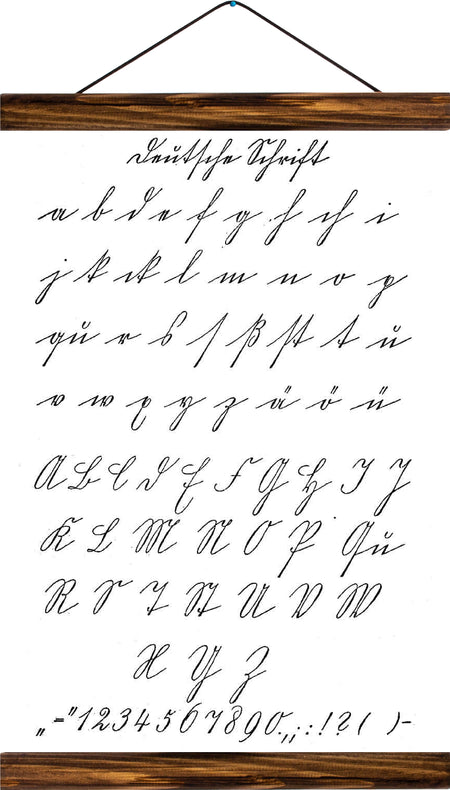 Deutsche Schrift
a b d e f g h ch i
j k ck l m n o p
qu r s ſ ß ſt t u
v w x y z ä ö ü
A B C D E F G H I J
K L M N O P Qu
R S T St U V W
X Y Z
„ - " 1 2 3 4 5 6 7 8 9 0 . , ; : ! ? ( ) -